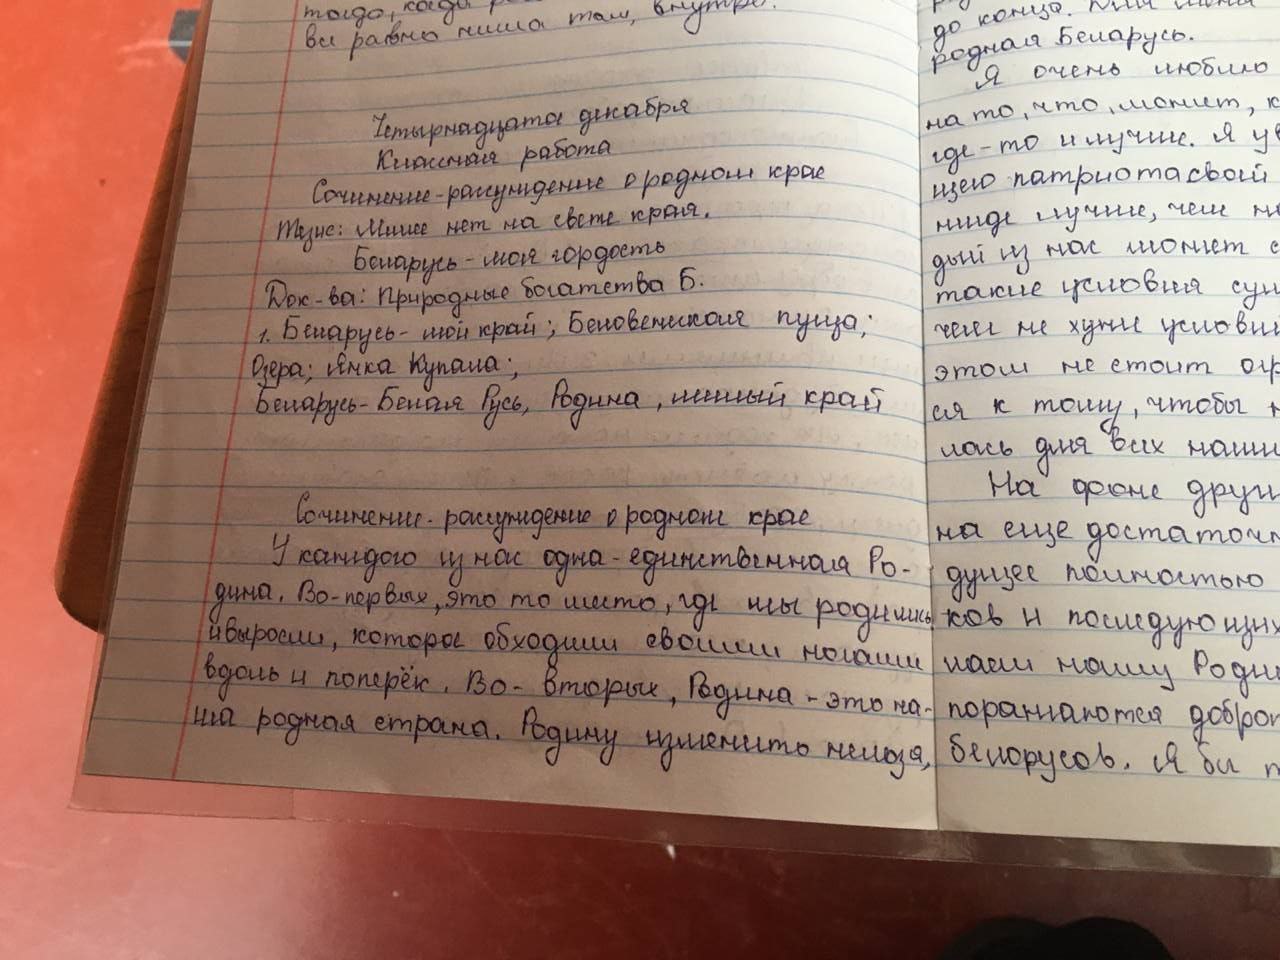 тогда, когда
вы равно ниша там, внутре.
Четырнадцата декабря
Классная работа
Сочинение-рассуждение о родном крае
Тезис: Милее нет на свете края.
Беларусь - моя гордость
Док-ва: Природные богатства Б.
1. Беларусь - мой край; Беловежская пуща;
Озера; Янка Купала;
Беларусь - Белая Русь, Родина, милый край
Сочинение-рассуждение о родном крае
У каждого из нас одна-единственная Ро-
дина. Во-первых, это то место, где мы родились
и выросли, которое обходили своими ногами
вдоль и поперёк. Во-вторых, Родина - это на-
ша родная страна. Родину изменить нельзя,
до конца. Для меня
родная Беларусь.
Я очень люблю
на то, что, может, к
где-то и лучше. Я ув
щего патриота свой
нигде лучше, чем на
дый из нас может с
такие условия сущ
чем не хуже условий
этом не стоит огр
ся к тому, чтобы н
лась для всех наши
На фоне други
на еще достаточн
дущее полностью
ков и последующих
лаем нашу Роди
поражаются доброт
белорусов. Я бы т